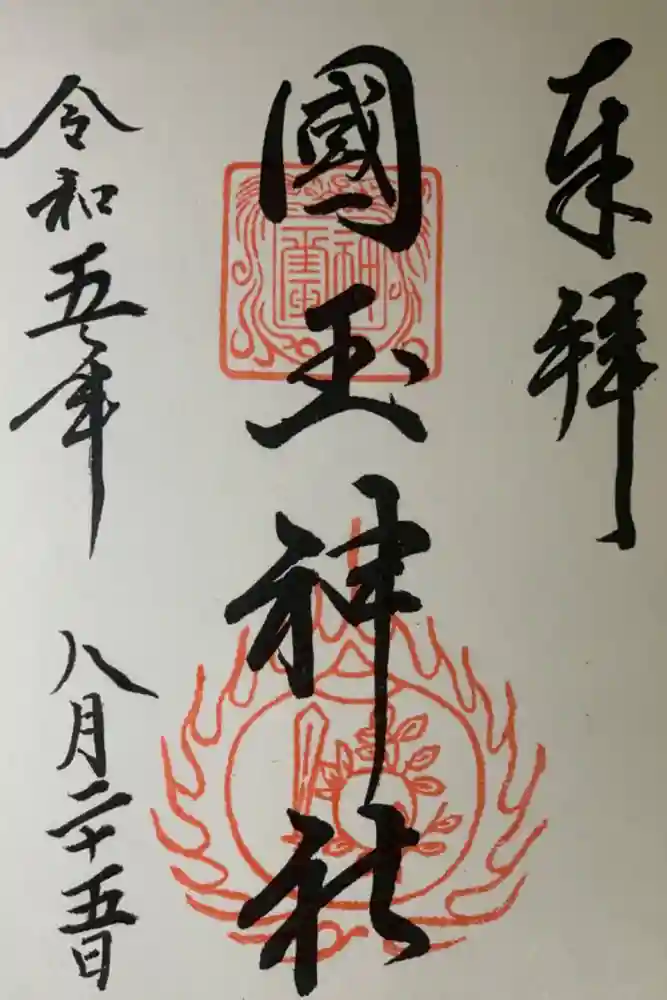 奉拝
國玉神社
令和五年
八月二十五日